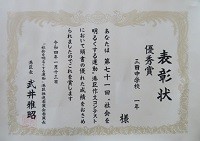 表彰状
優秀賞
三田中学校 一年
様
あなたは第七十一回“社会を
明るくする運動”港区作文コンテスト
において頭書の優れた成績をおさめ
られましたのでこれを賞します
令和四年一月十三日
港区長 武井雅昭